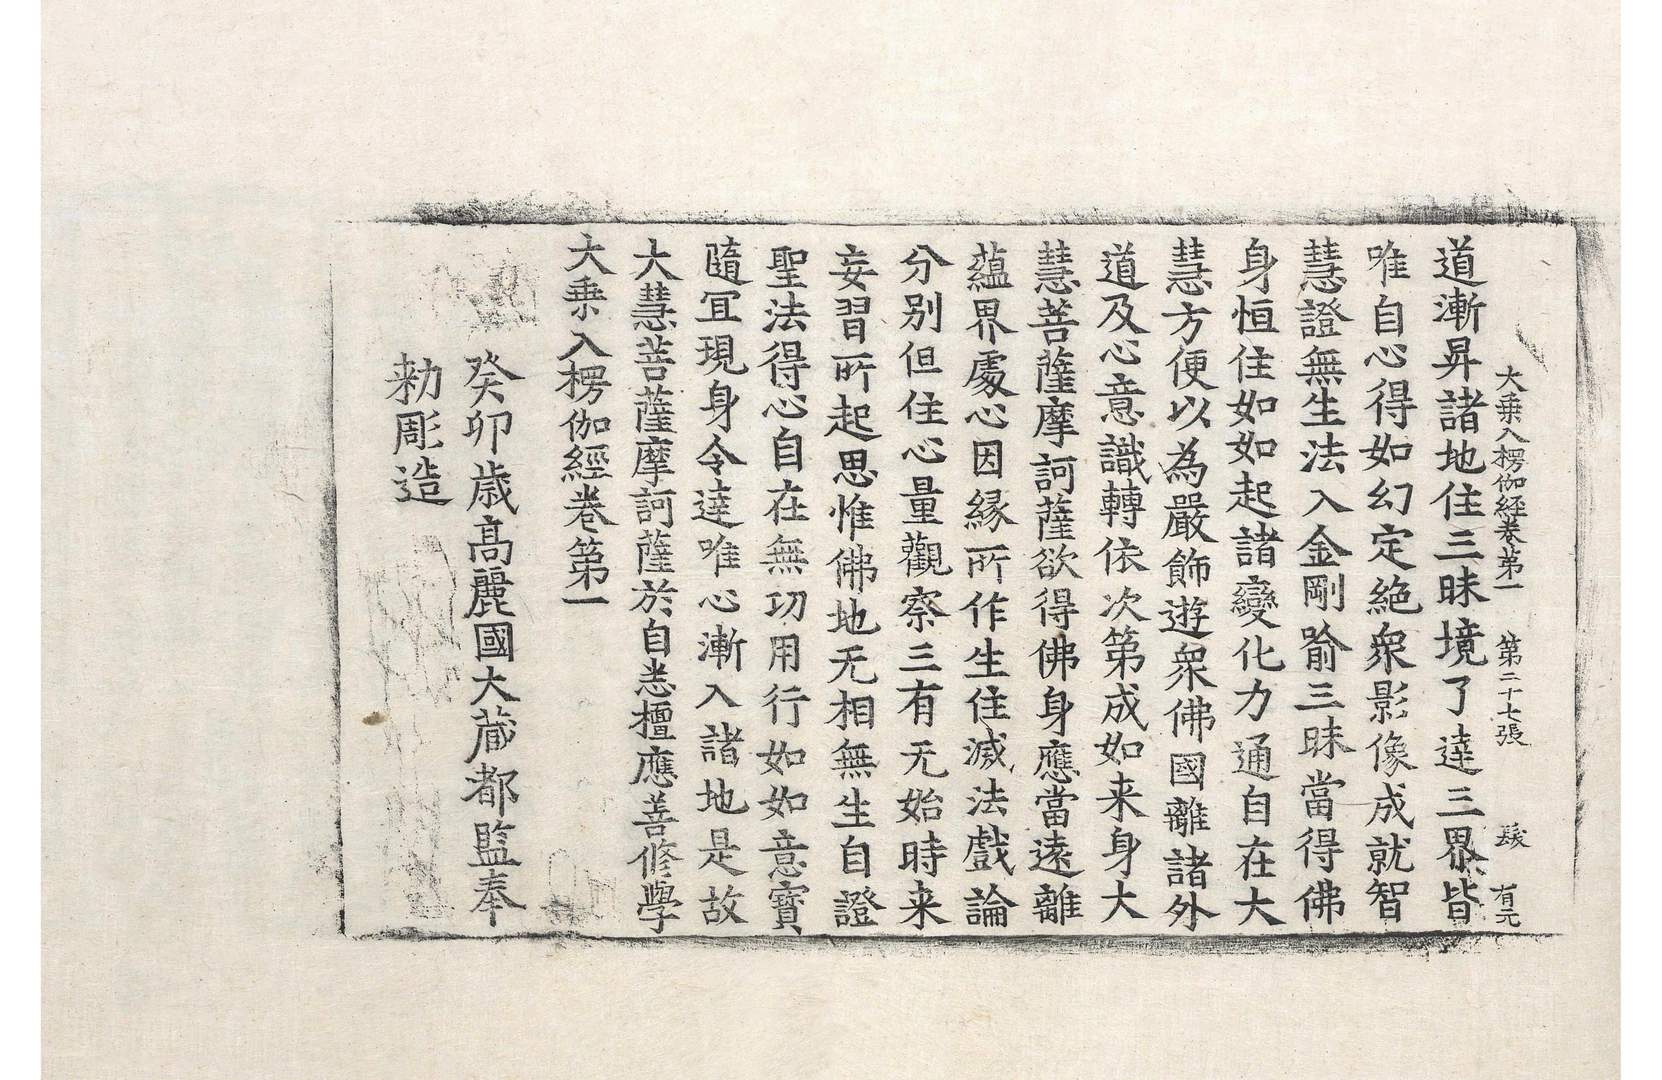 大乗入楞伽経卷第一 第二十七張 髮 有元
道漸昇諸地住三昧境了達三界皆
唯自心得如幻定絶衆影像成就智
慧證無生法入金剛喻三昧當得佛
身恒住如如起諸變化力通自在大
慧方便以為嚴飾遊衆佛國離諸外
道及心意識轉依次第成如来身大
慧菩薩摩訶薩欲得佛身應當遠離
蘊界處心因縁所作生住滅法戲論
分别但住心量觀察三有无始時来
妄習所起思惟佛地无相無生自證
聖法得心自在無功用行如如意寶
隨冝現身令達唯心漸入諸地是故
大慧菩薩摩訶薩於自悉檀應善修學
大乗入楞伽經卷第一
癸卯歳高麗國大蔵都監奉
勅彫造